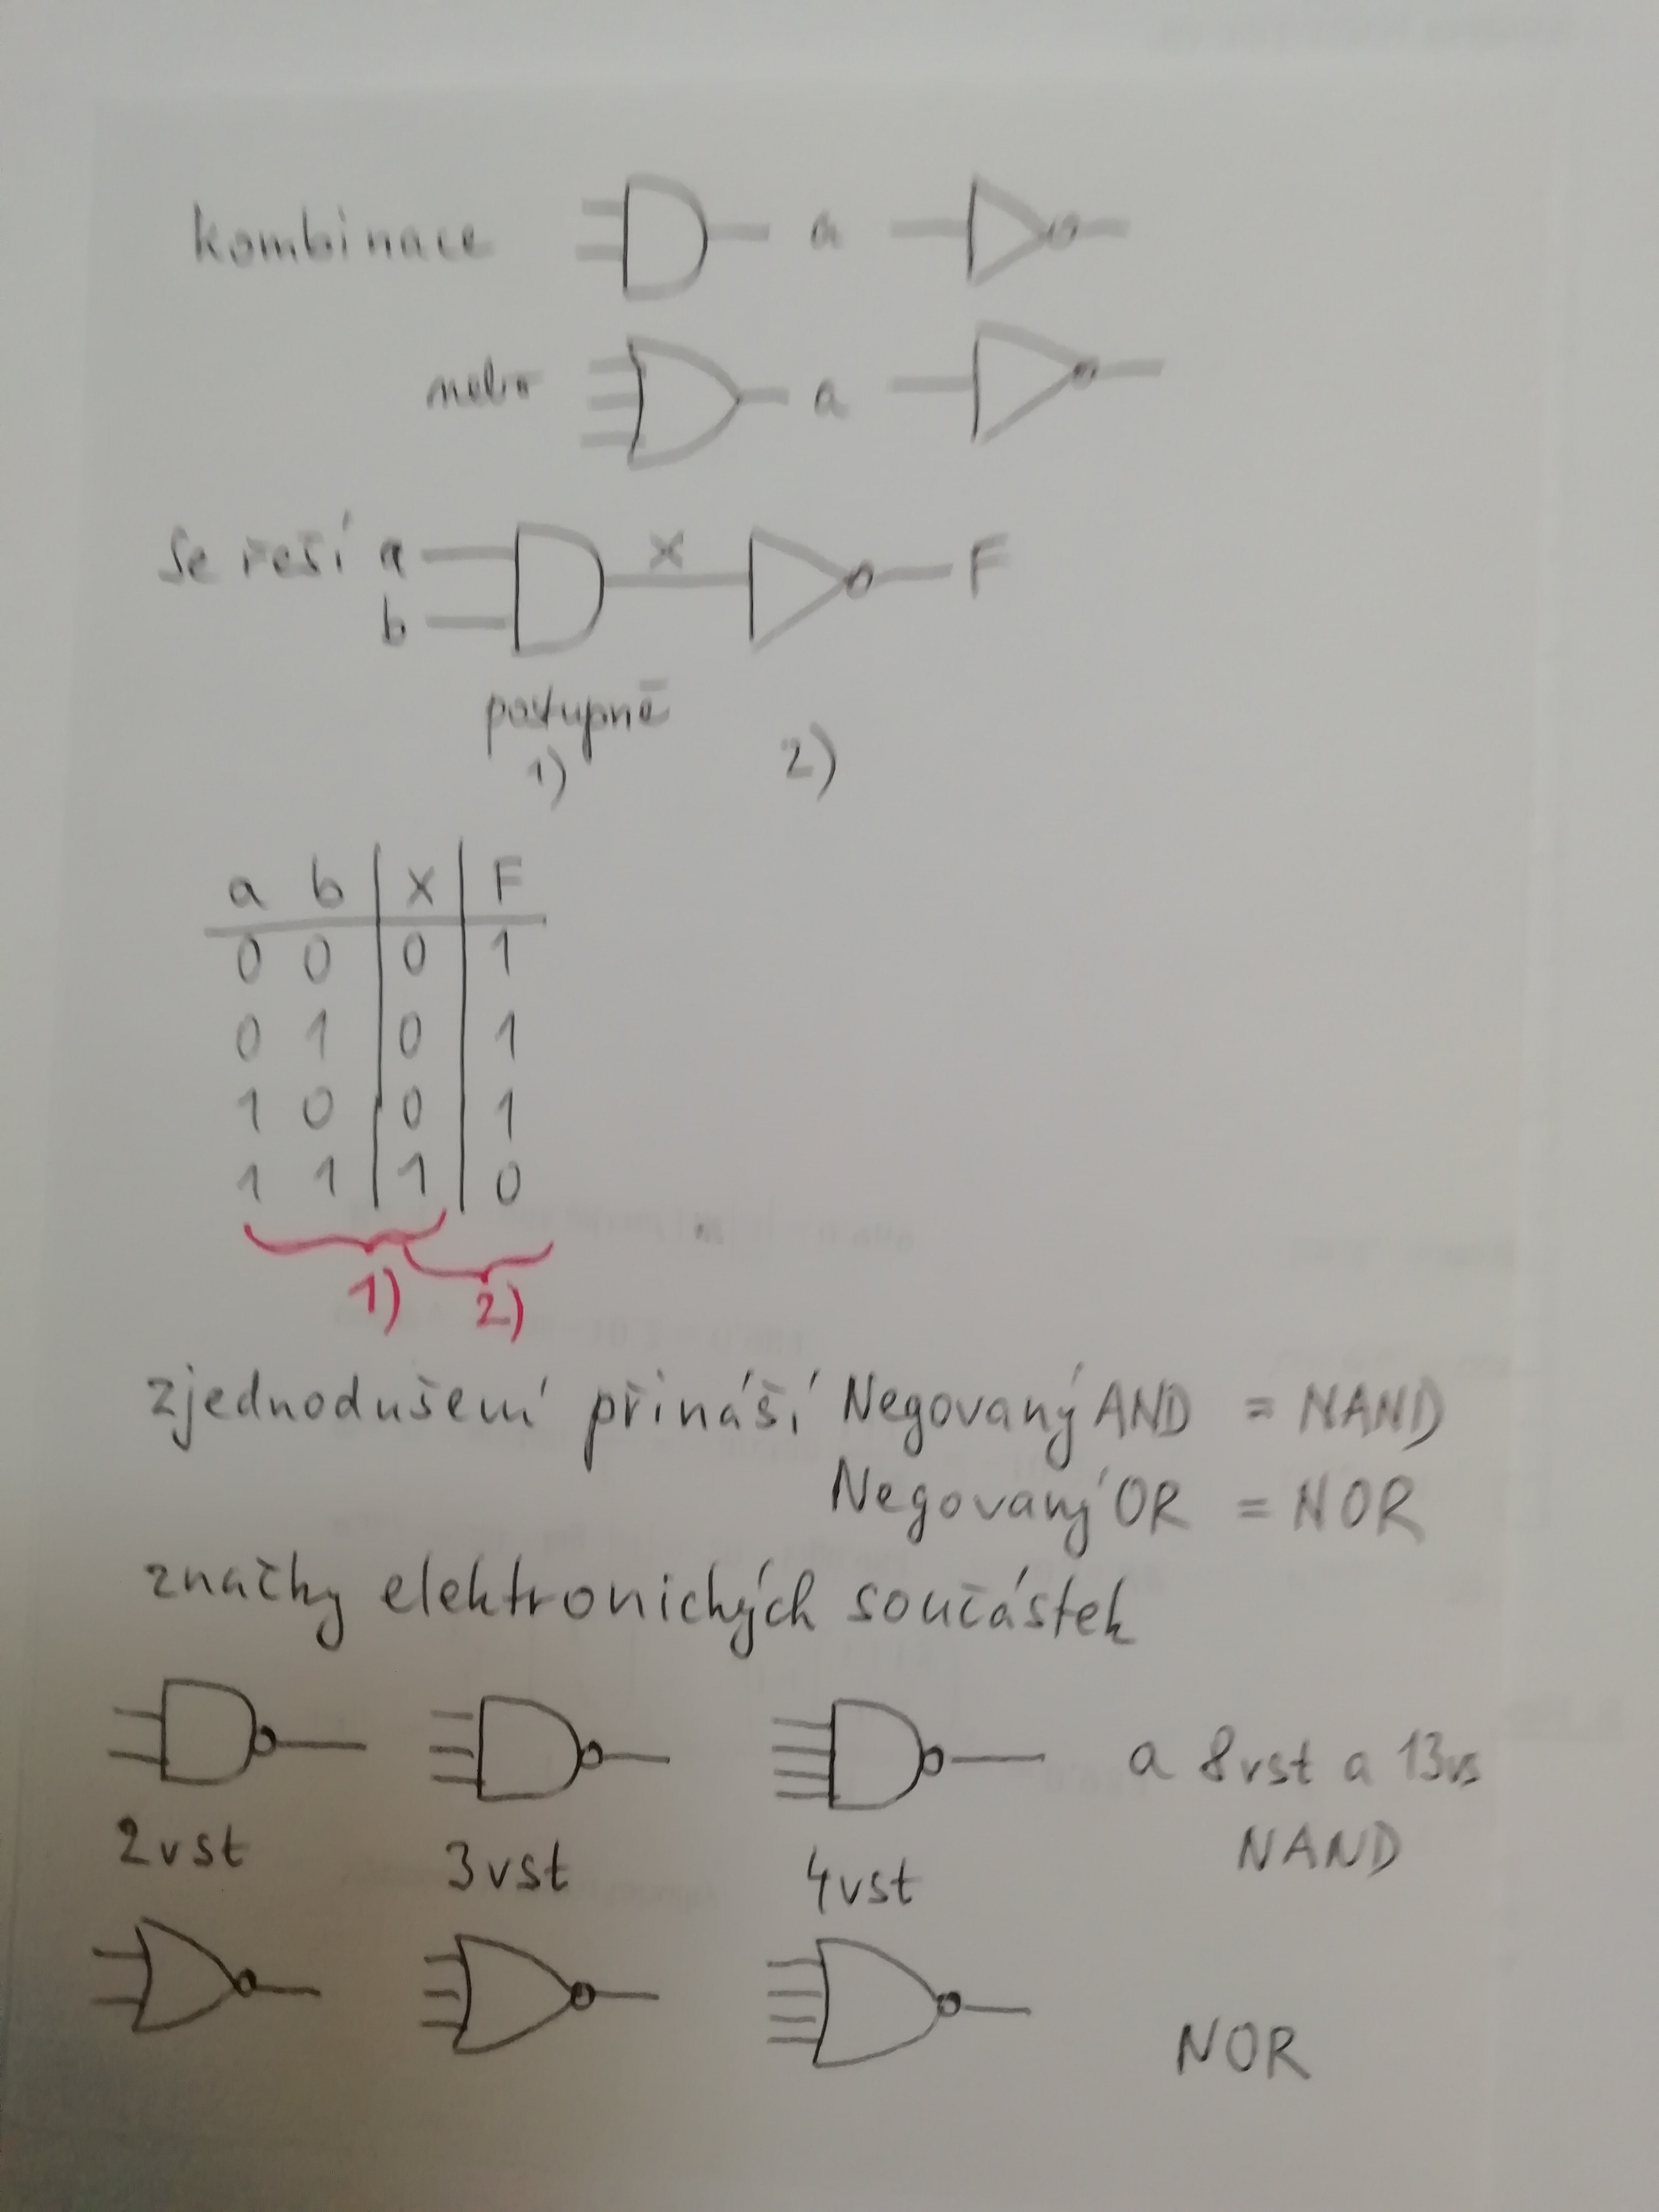 kombinace a
nebo a
se řeší a x F
b
postupně
1) 2)
a b x F
0 0 0 1
0 1 0 1
1 0 0 1
1 1 1 0
1) 2)
zjednodušení přináší Negovaný AND = NAND
Negovaný OR = NOR
značky elektronických součástek
a 8vst a 13vs
2vst 3vst 4vst NAND
NOR